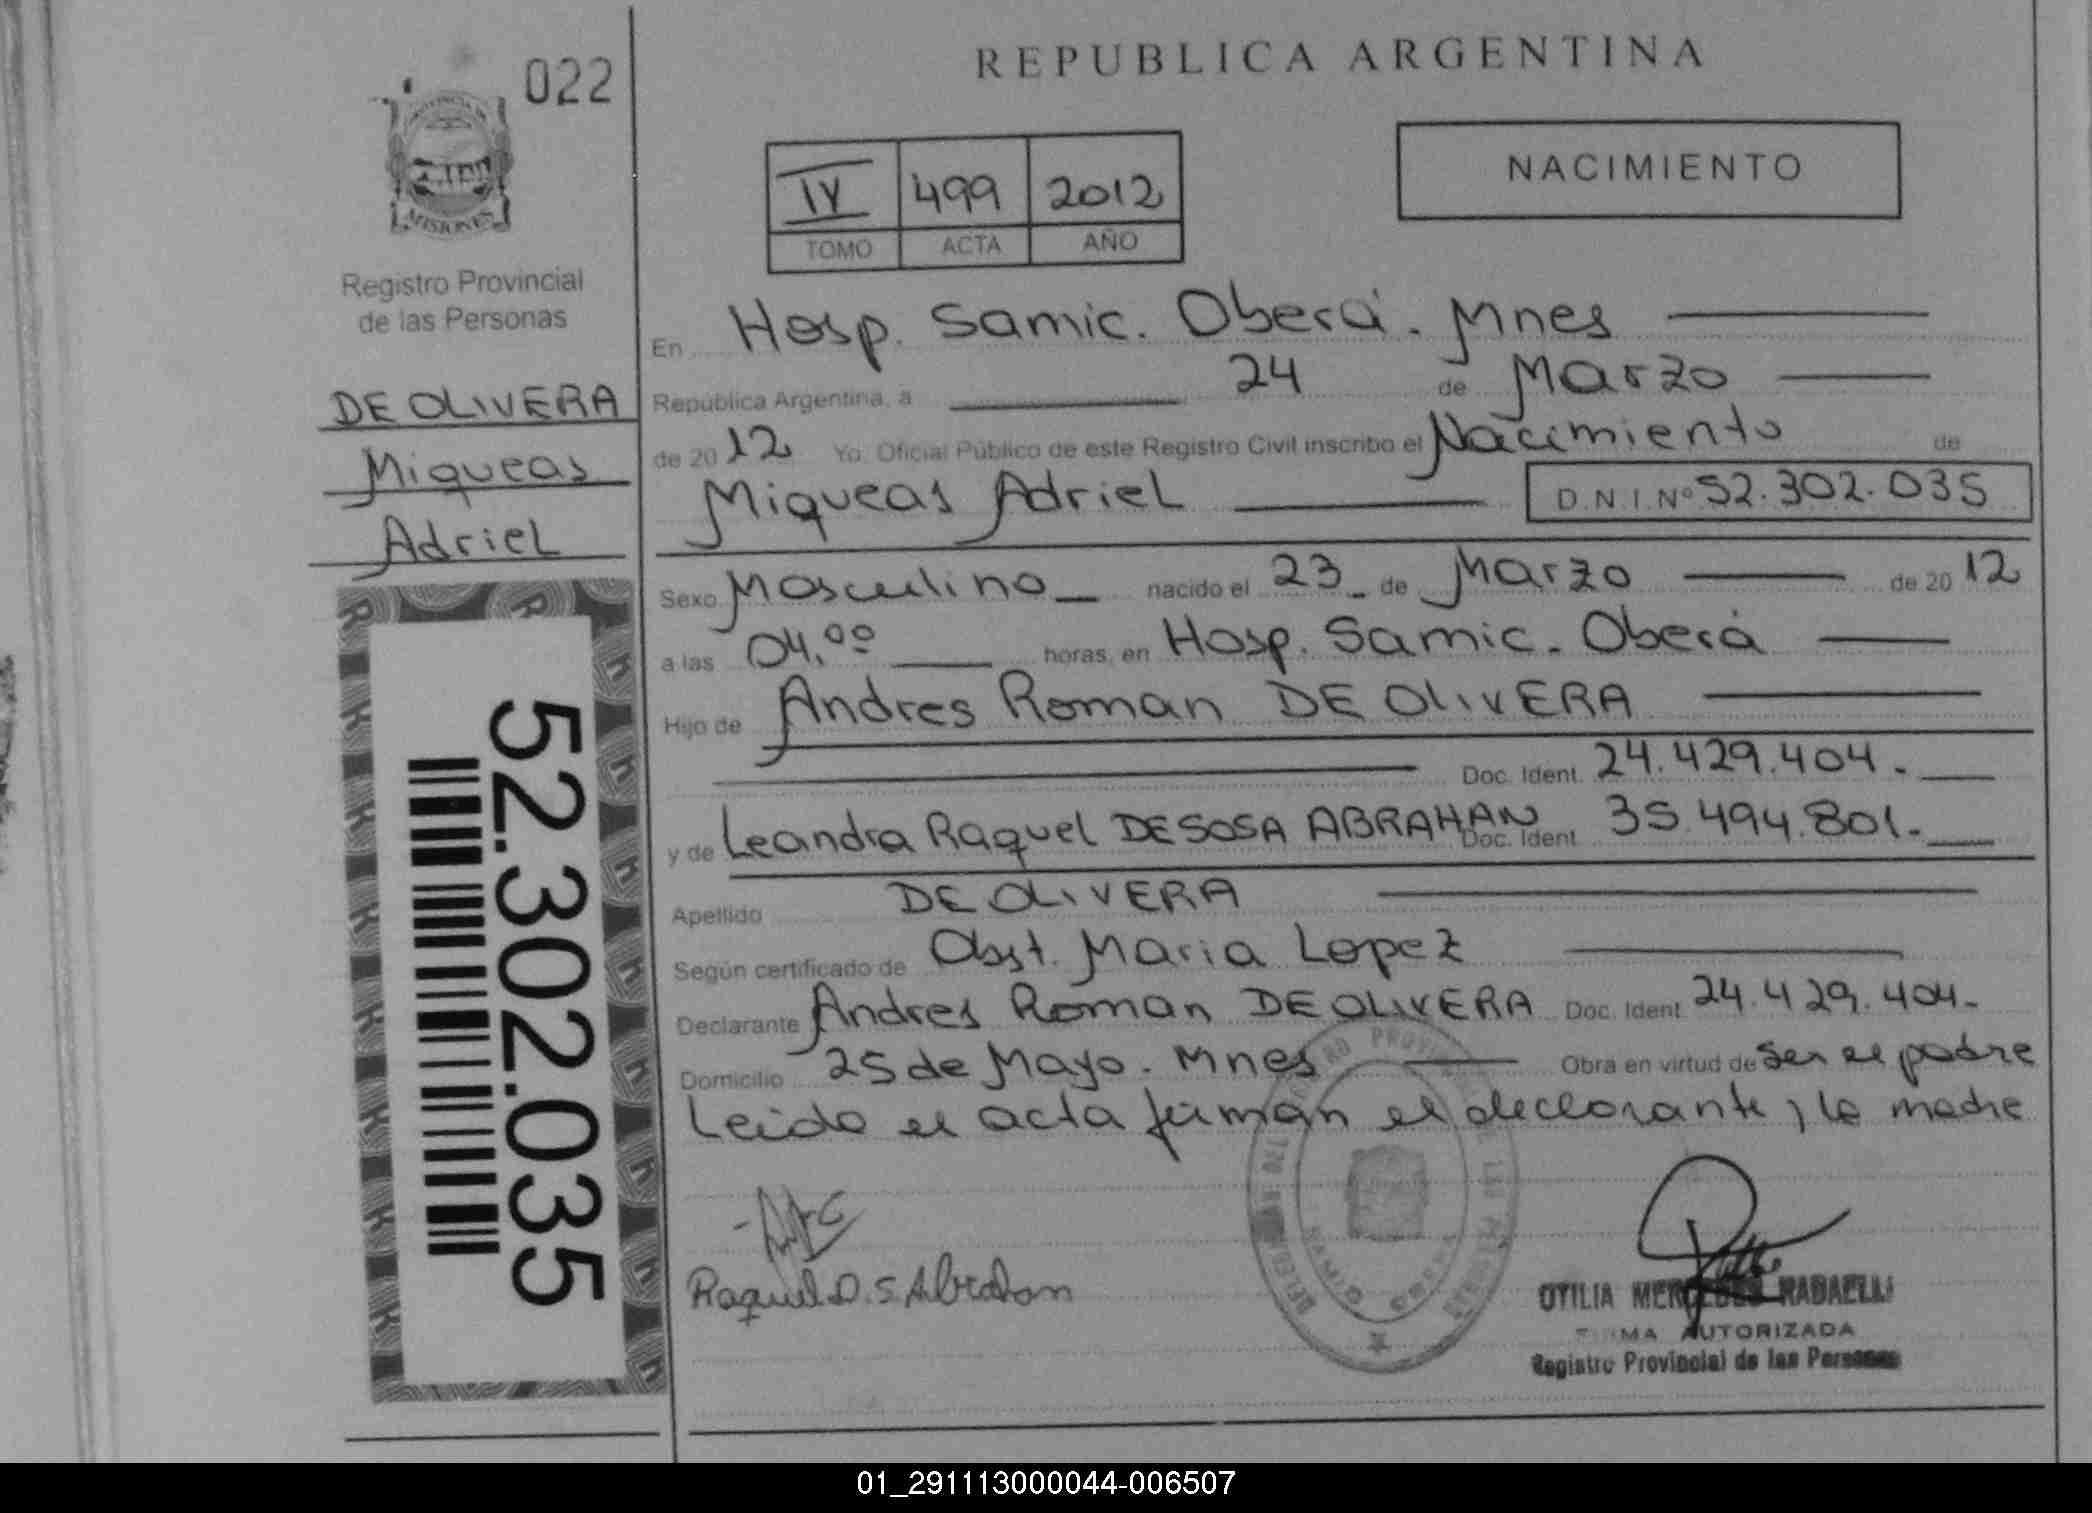 022
PROVINCIA DE
MISIONES
Registro Provincial
de las Personas
DE OLIVERA
Miqueas
Adriel
52.302.035
REPUBLICA ARGENTINA
NACIMIENTO
IV 499 2012
TOMO ACTA AÑO
En Hosp. Samic. Oberá. Mnes
República Argentina, a 24 de Marzo
de 2012 Yo, Oficial Público de este Registro Civil inscribo el Nacimiento de
Miqueas Adriel D.N.I. Nº 52.302.035
Sexo Masculino nacido el 23 de Marzo de 2012
a las 04,00 horas, en Hosp. Samic. Oberá
Hijo de Andres Roman DE OLIVERA
Doc. Ident. 24.429.404.
y de Leandra Raquel DE SOSA ABRAHAN Doc. Ident. 35.494.801.
Apellido DE OLIVERA
Según certificado de Obst. Maria Lopez
Declarante Andres Roman DE OLIVERA Doc. Ident. 24.429.404.
Domicilio 25 de Mayo. Mnes Obra en virtud de ser el padre
Leido el acta firman el declarante y la madre
Raquel D. S. Abrahan
OTILIA MERCEDES RADAELLI
FIRMA AUTORIZADA
Registro Provincial de las Personas
01_291113000044-006507